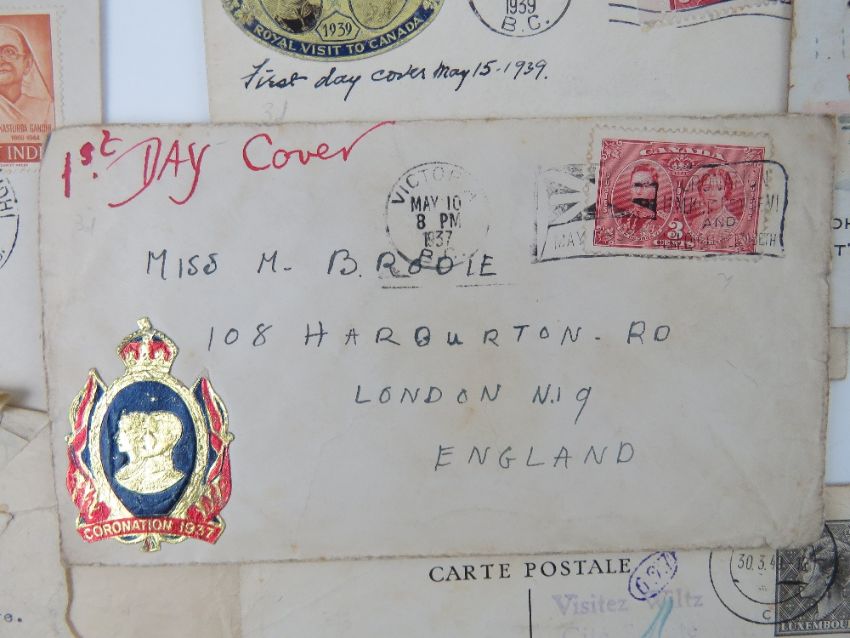 1939
ROYAL VISIT TO CANADA
1939
B.C.
First day cover May 15-1939.
KASTURBA GANDHI
1st DAY Cover
VICTORIA
MAY 10
8 PM
1937
B.C.
CANADA
3
CENTS
MAY
AND
MISS M. BRODIE
108 HARBURTON. RD
LONDON N.19
ENGLAND
CORONATION 1937
CARTE POSTALE
637
30.3.4
Visitez Wiltz
LUXEMBOURG